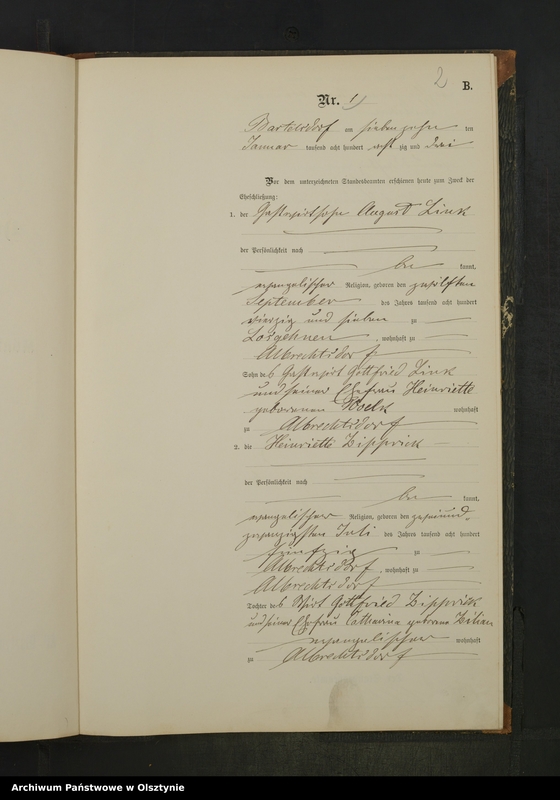 2
B.
Nr. 1
Bartelsdorf am siebenzehn ten
Januar tausend acht hundert acht zig und drei
Vor dem unterzeichneten Standesbeamten erschienen heute zum Zweck der
Eheschließung:
1. der Gastwirthsohn August Link
der Persönlichkeit nach
be kannt,
evangelischer Religion, geboren den zwölften
September des Jahres tausend acht hundert
vierzig und sieben zu
Losgehnen, wohnhaft zu
Albrechtsdorf
Sohn des Gastwirth Gottfried Link
und seiner Ehefrau Heinriette
geborenen wohnhaft
zu Albrechtsdorf
2. die Heinriette Zipprick
der Persönlichkeit nach
be kannt,
evangelischer Religion, geboren den zweiund-
zwanzigsten Juli des Jahres tausend acht hundert
fünfzig zu
Albrechtsdorf, wohnhaft zu
Albrechtsdorf
Tochter des Wirth Gottfried Zipprick
und seiner Ehefrau Catharina geborene
evangelischer wohnhaft
zu Albrechtsdorf
Archiwum Państwowe w Olsztynie